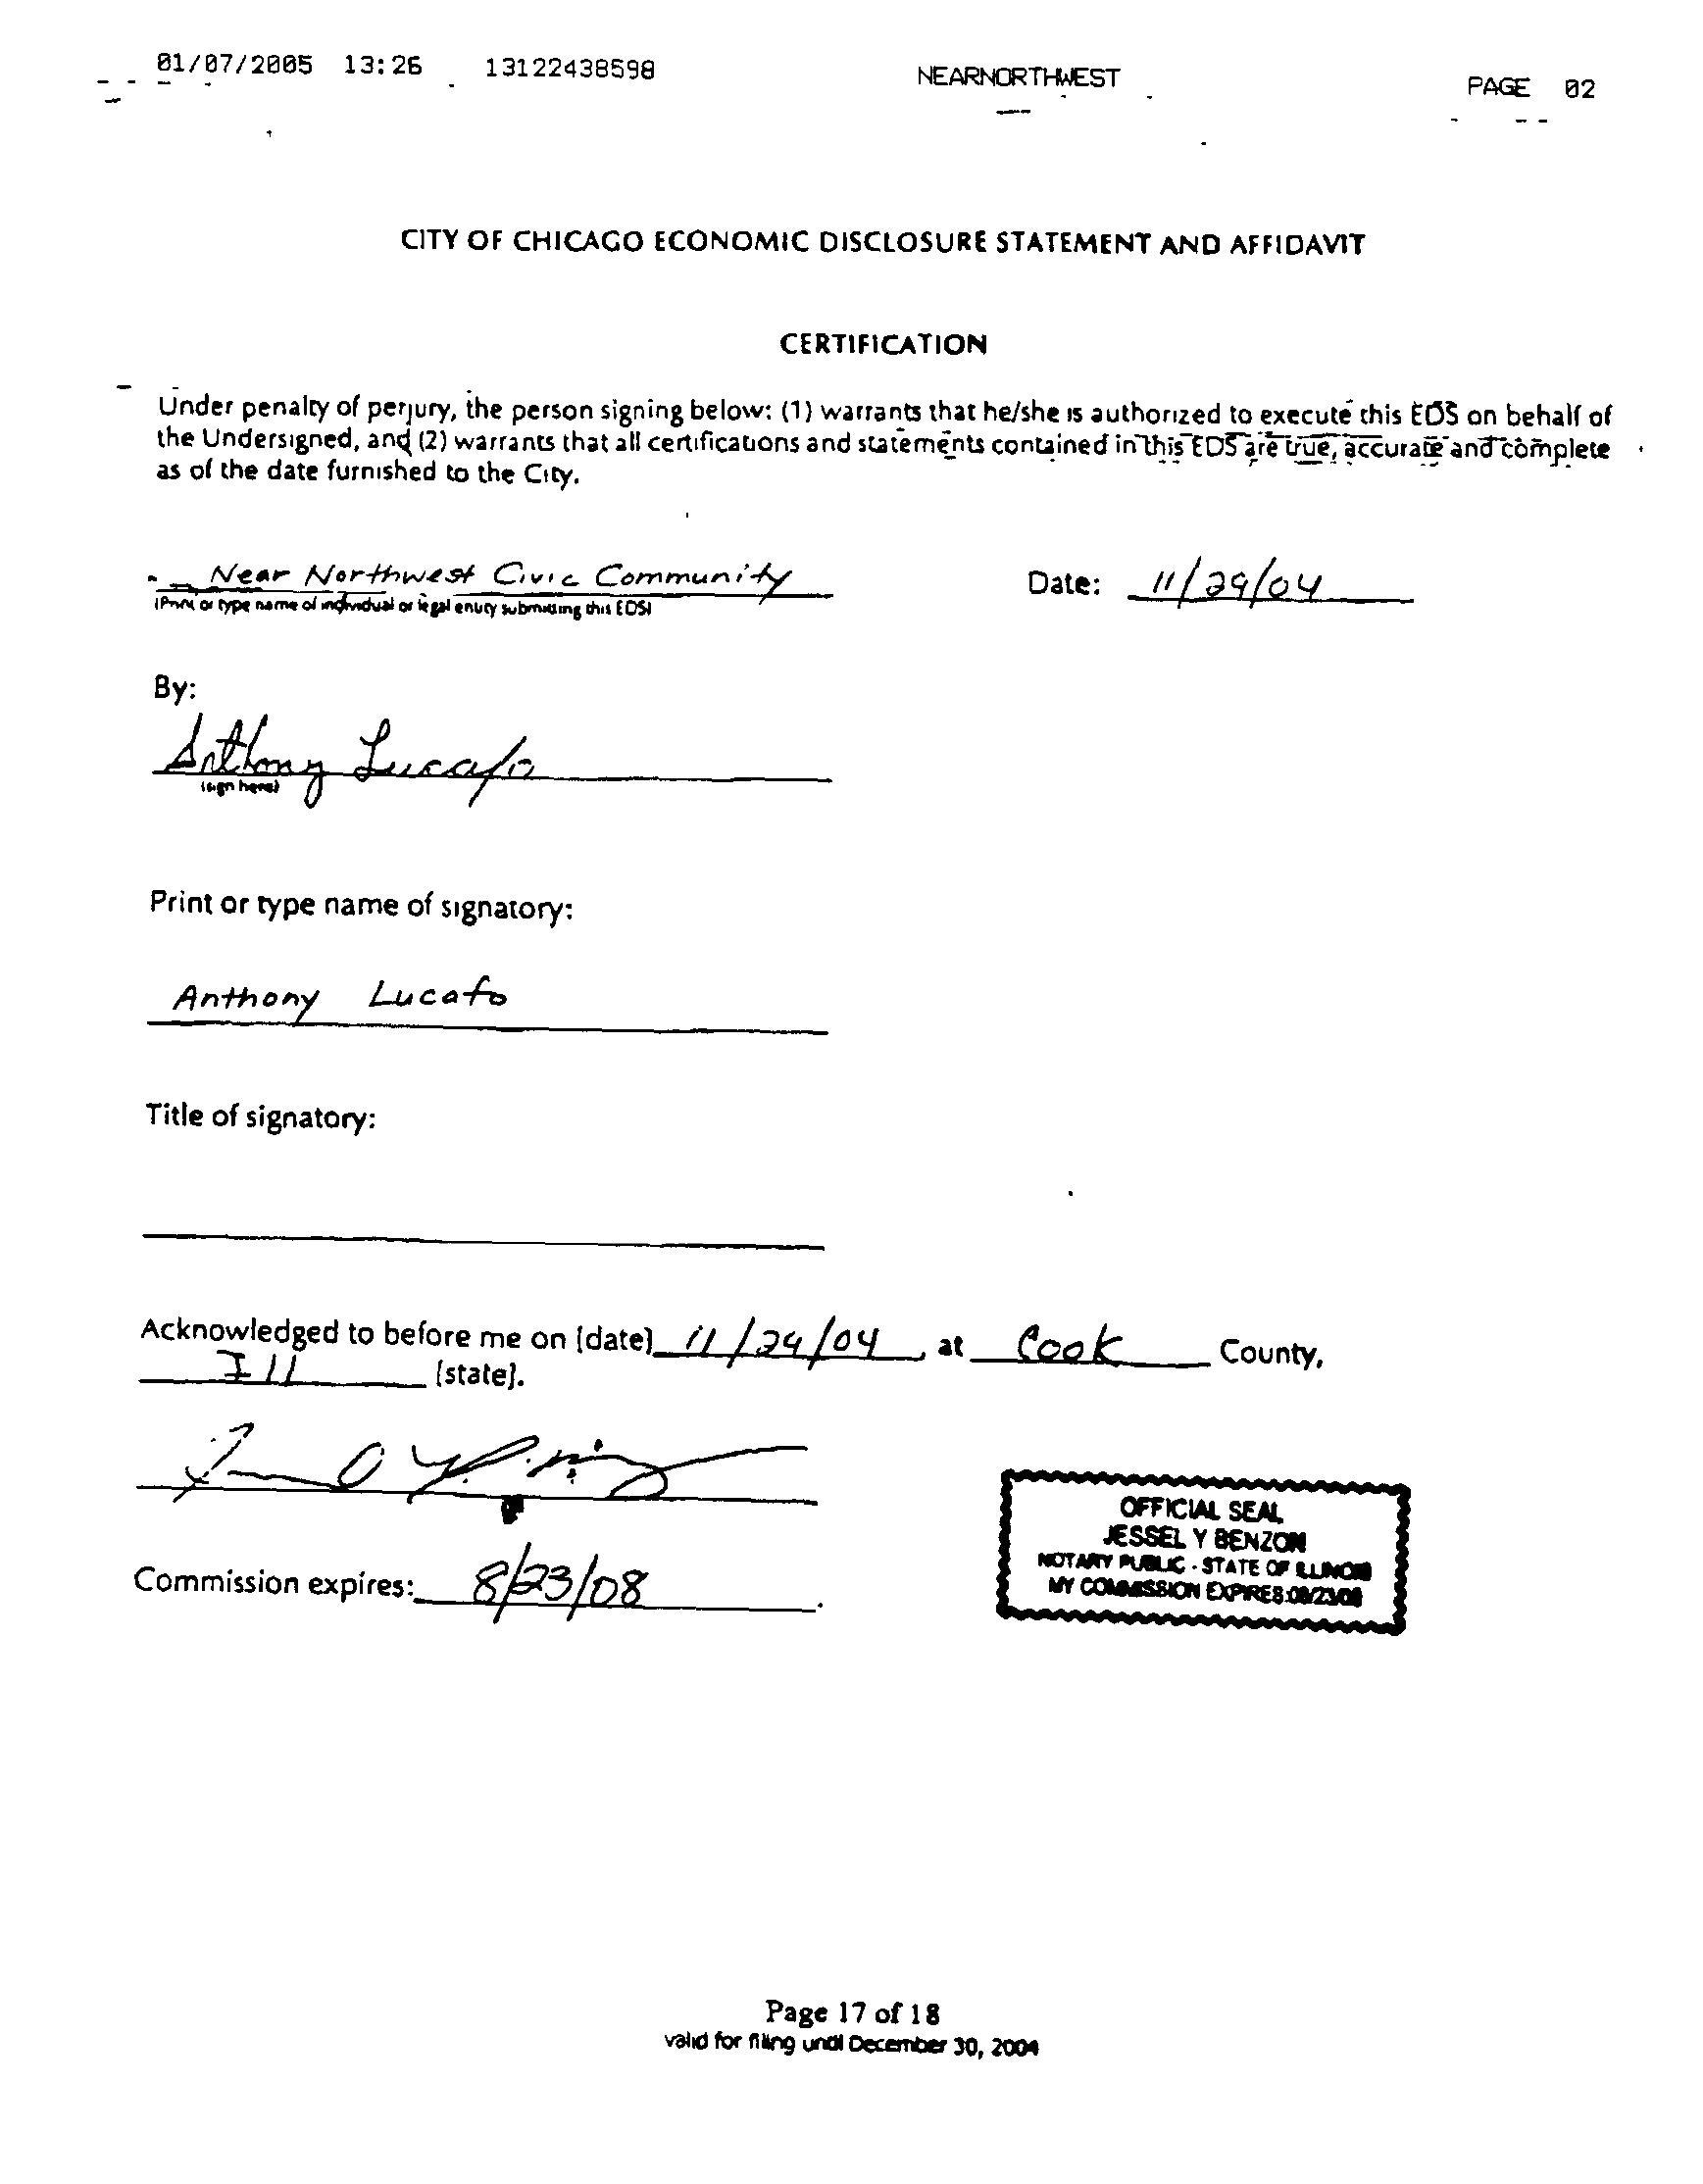 01/07/2005 13:26 13122438598 NEARNORTHWEST PAGE 02
CITY OF CHICAGO ECONOMIC DISCLOSURE STATEMENT AND AFFIDAVIT
CERTIFICATION
Under penalty of perjury, the person signing below: (1) warrants that he/she is authorized to execute this EDS on behalf of
the Undersigned, and (2) warrants that all certifications and statements contained in this EDS are true, accurate and complete
as of the date furnished to the City.
Near Northwest Civic Community Date: 11/29/04
(Print or type name of individual or legal entity submitting this EDS)
By:
Anthony Lucafo
(sign here)
Print or type name of signatory:
Anthony Lucafo
Title of signatory:
Acknowledged to before me on [date] 11/29/04, at Cook County,
Ill [state].
Commission expires: 8/23/08.
OFFICIAL SEAL
JESSEL Y BENZON
NOTARY PUBLIC - STATE OF ILLINOIS
MY COMMISSION EXPIRES:08/23/08
Page 17 of 18
valid for filing until December 30, 2004